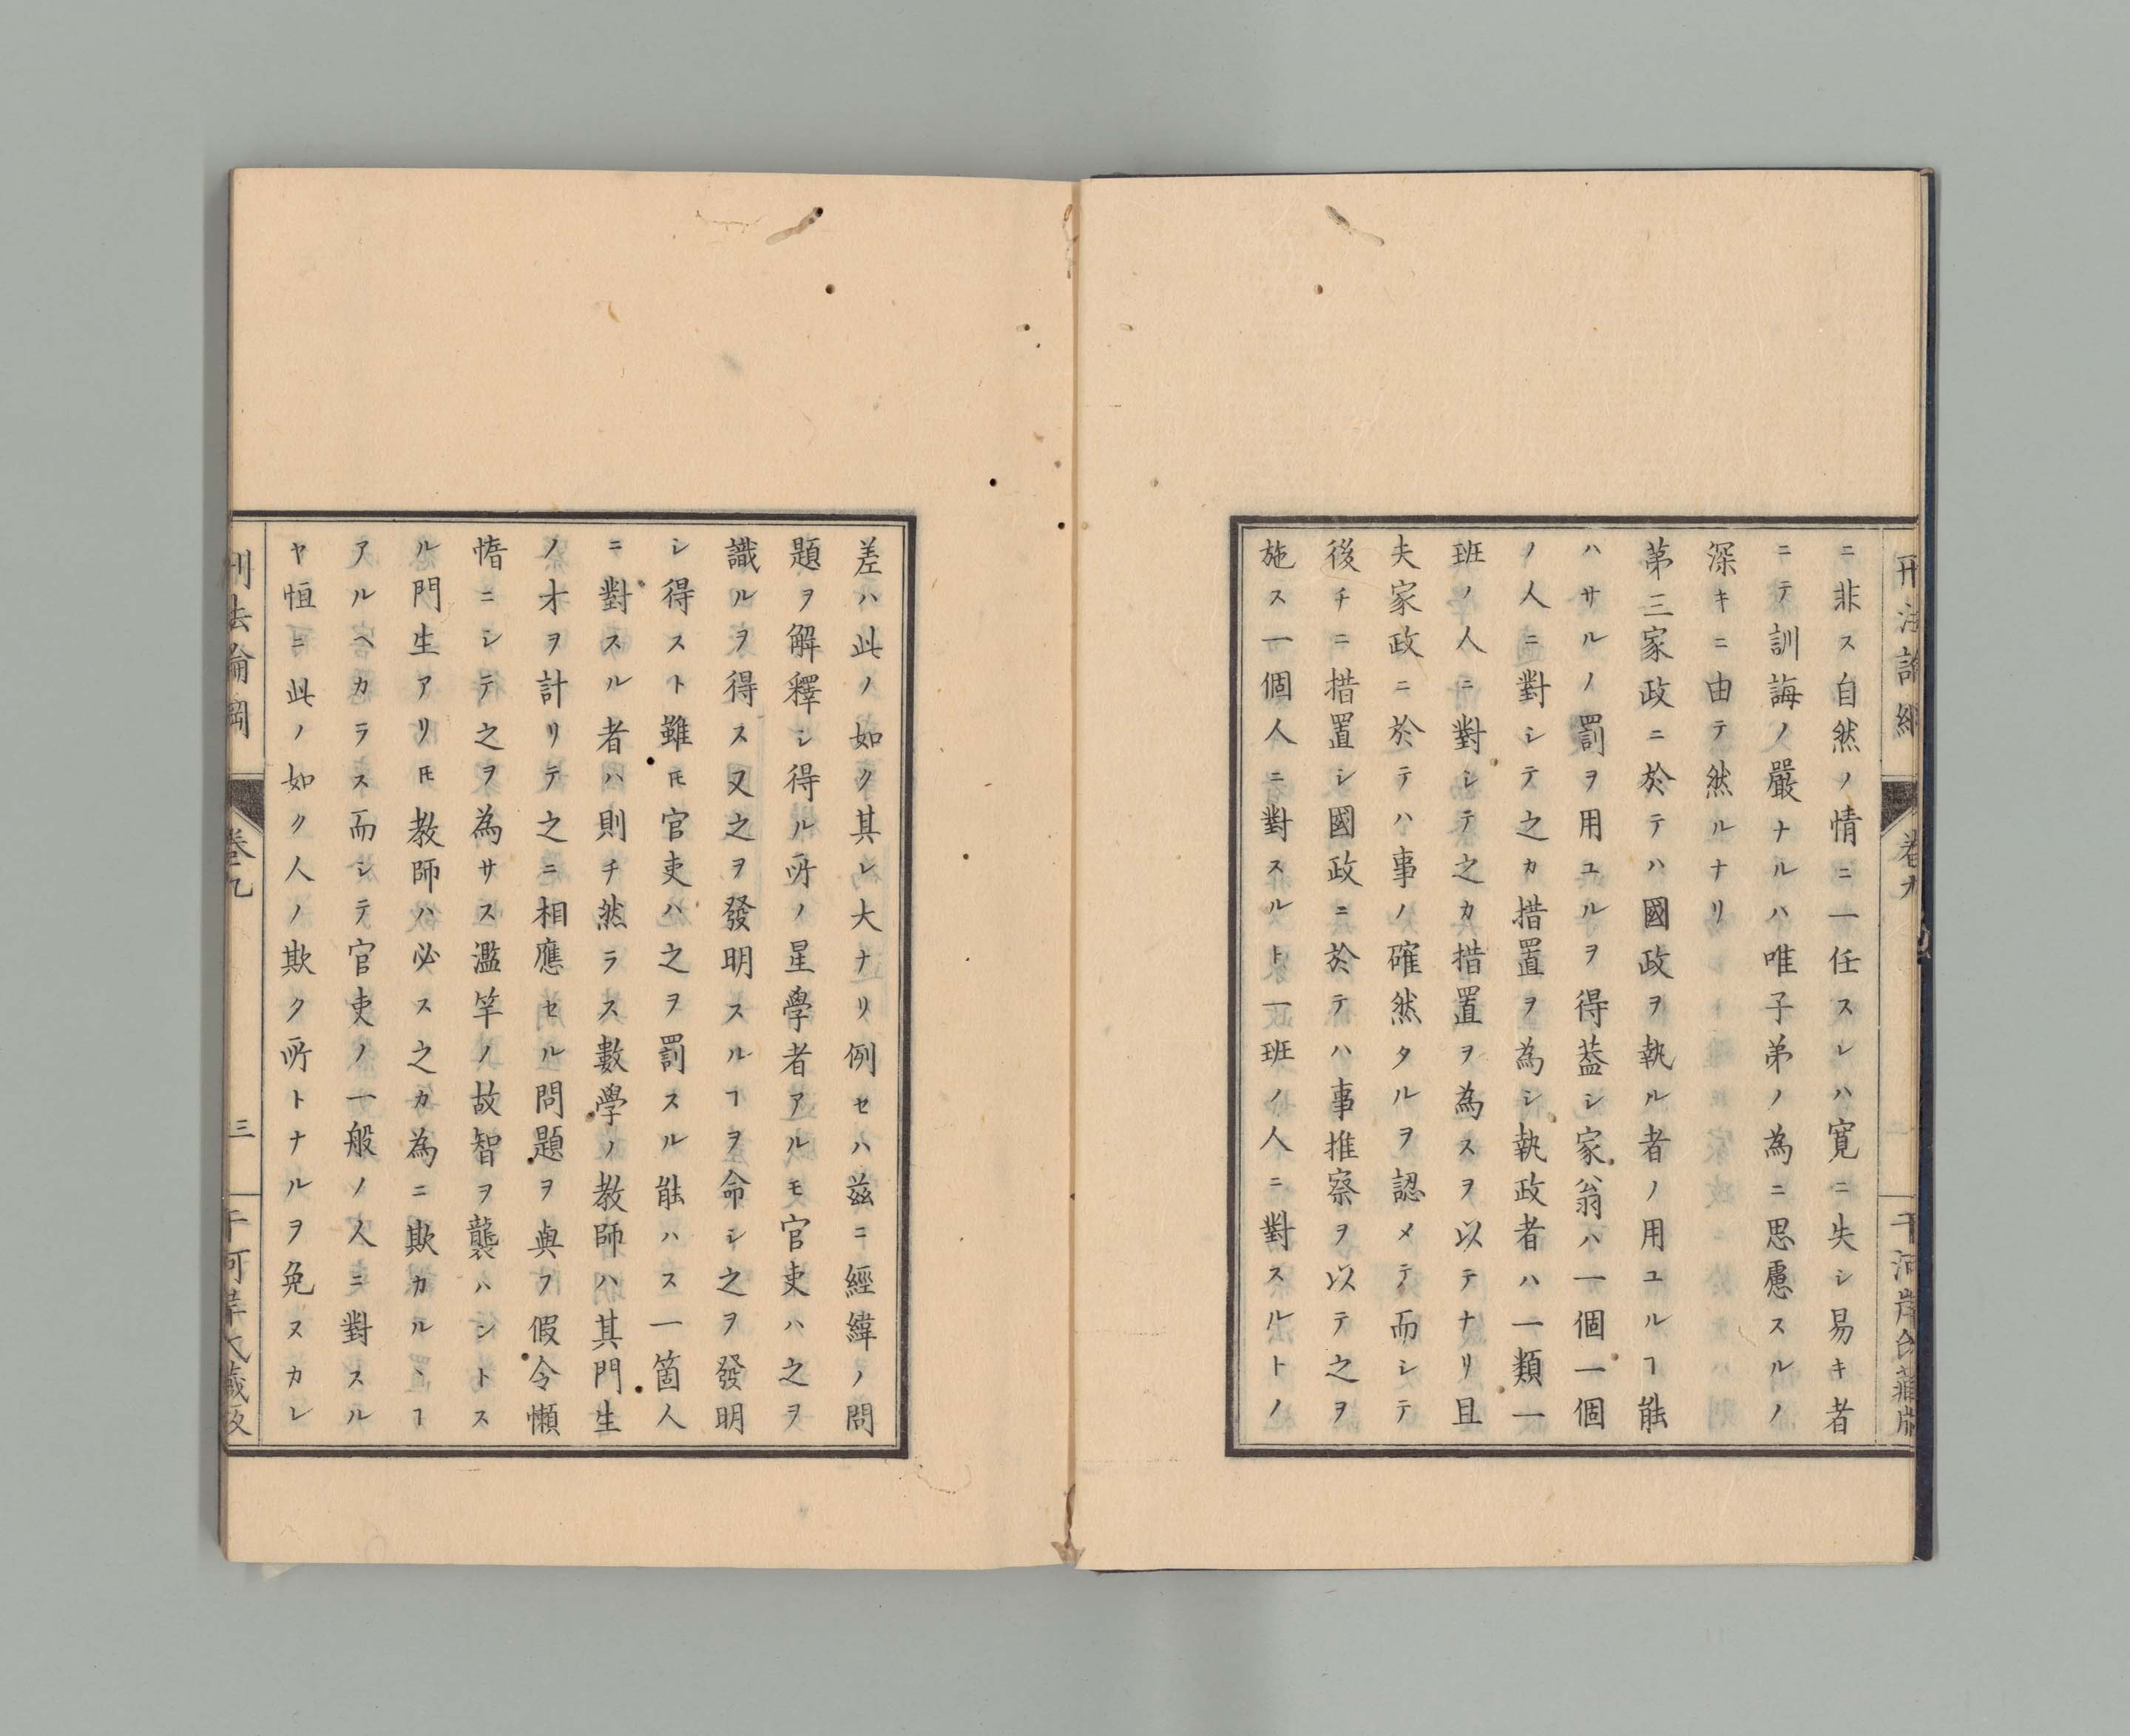 ニ非ス自然ノ情ニ一任スレハ寛ニ失シ易キ者
ニテ訓誨ノ嚴ナルハ唯子弟ノ為ニ思慮スルノ
深キニ由テ然ルナリ
第三家政ニ於テハ國政ヲ執ル者ノ用ユルヿ能
ハサルノ罰ヲ用ユルヲ得蓋シ家翁ハ一個一個
ノ人ニ對シテ之カ措置ヲ為シ執政者ハ一類一
班ノ人ニ對シテ之カ措置ヲ為スヲ以テナリ且
夫家政ニ於テハ事ノ確然タルヲ認メテ而シテ
後チニ措置シ國政ニ於テハ事推察ヲ以テ之ヲ
施ス一個人ニ對スルト一班ノ人ニ對スルトノ
差ハ此ノ如ク其レ大ナリ例セハ茲ニ經緯ノ問
題ヲ解釋シ得ル所ノ星學者アルモ官吏ハ之ヲ
識ルヲ得ス又之ヲ發明スルヿヲ命シ之ヲ發明
シ得スト雖𪜈官吏ハ之ヲ罰スル能ハス一箇人
ニ對スル者ハ則チ然ラス數學ノ教師ハ其門生
ノ才ヲ計リテ之ニ相應セル問題ヲ與フ假令懶
惰ニシテ之ヲ為サス濫竿ノ故智ヲ襲ハントス
ル門生アリ𪜈教師ハ必ス之カ為ニ欺カルヽヿ
アルヘカラス而シテ官吏ノ一般ノ人ニ對スル
ヤ恒ニ此ノ如ク人ノ欺ク所トナルヲ免ヌカレ
刑法論綱
卷九
三